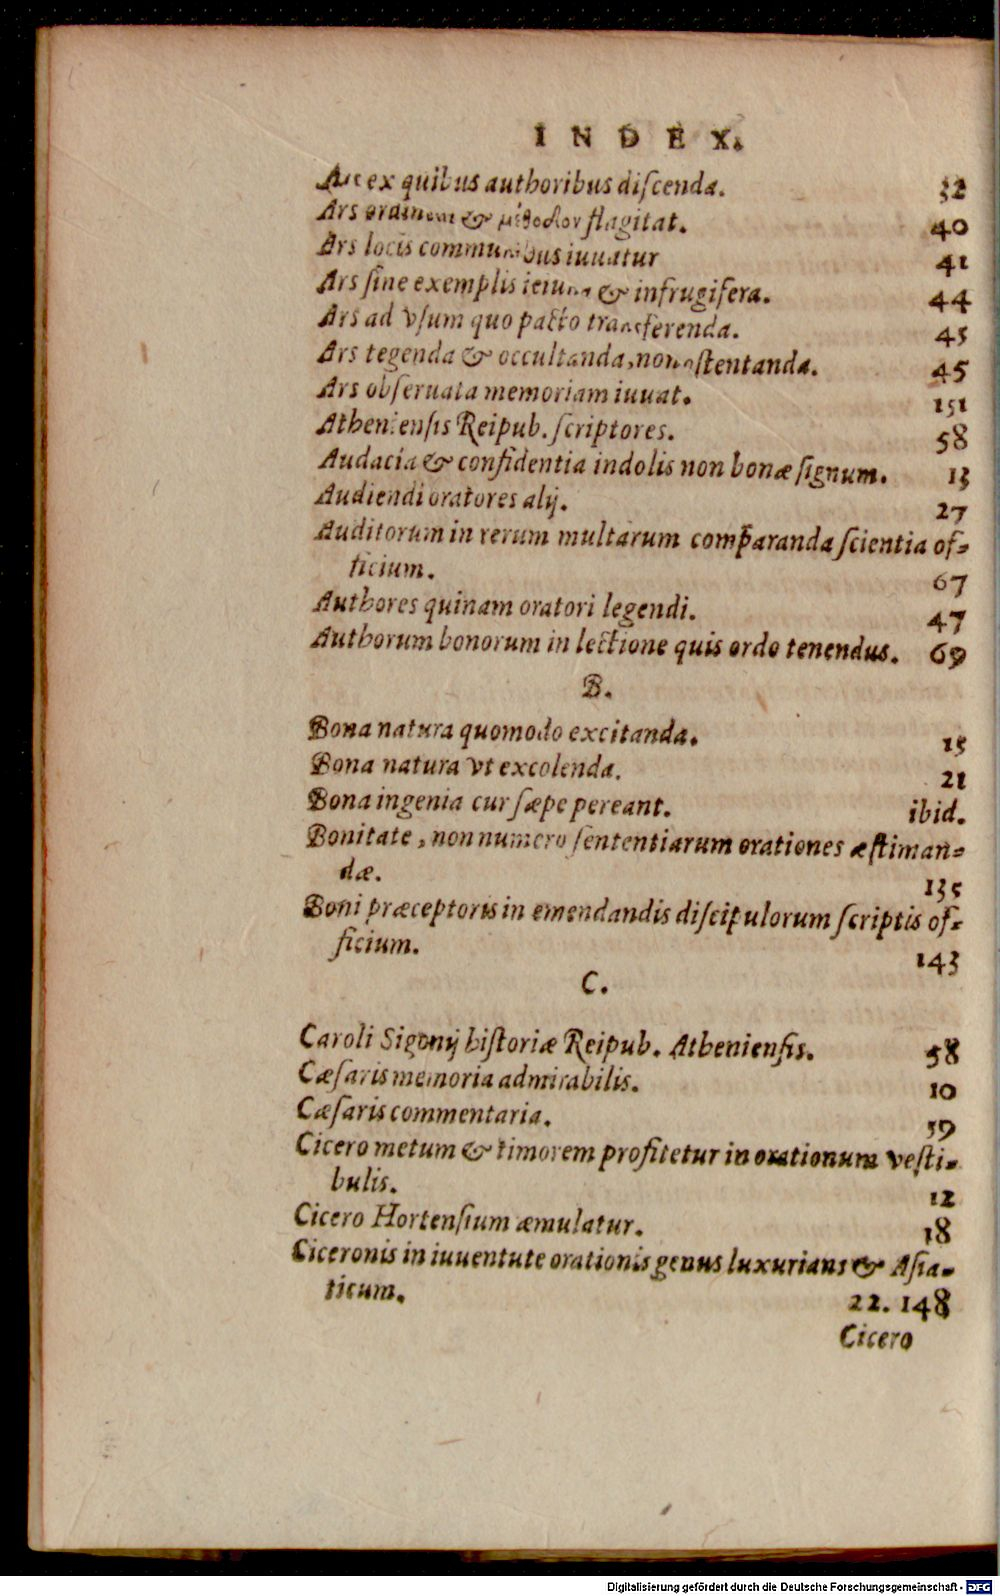 INDEX.
Ars ex quibus authoribus diſcenda. 32
Ars ordinem & μέθοδον flagitat. 40
Ars locis communibus iuuatur 41
Ars ſine exemplis ieiuna & infrugifera. 44
Ars ad vſum quo pacto transferenda. 45
Ars tegenda & occultanda, non oſtentanda. 45
Ars obſeruata memoriam iuuat. 151
Athenienſis Reipub. ſcriptores. 58
Audacia & confidentia indolis non bonæ ſignum. 13
Audiendi oratores alij. 27
Auditorum in rerum multarum comparanda ſcientia of-
ficium. 67
Authores quinam oratori legendi. 47
Authorum bonorum in lectione quis ordo tenendus. 69
B.
Bona natura quomodo excitanda. 15
Bona natura vt excolenda. 21
Bona ingenia cur ſæpe pereant. ibid.
Bonitate, non numero ſententiarum orationes æſtiman-
dæ. 135
Boni præceptoris in emendandis diſcipulorum ſcriptis of-
ficium. 143
C.
Caroli Sigonij hiſtoriæ Reipub. Athenienſis. 58
Cæſaris memoria admirabilis. 10
Cæſaris commentaria. 59
Cicero metum & timorem profitetur in orationum veſti-
bulis. 12
Cicero Hortenſium æmulatur. 18
Ciceronis in iuuentute orationis genus luxurians & Aſia-
ticum. 22. 148
Cicero
Digitalisierung gefördert durch die Deutsche Forschungsgemeinschaft - DFG